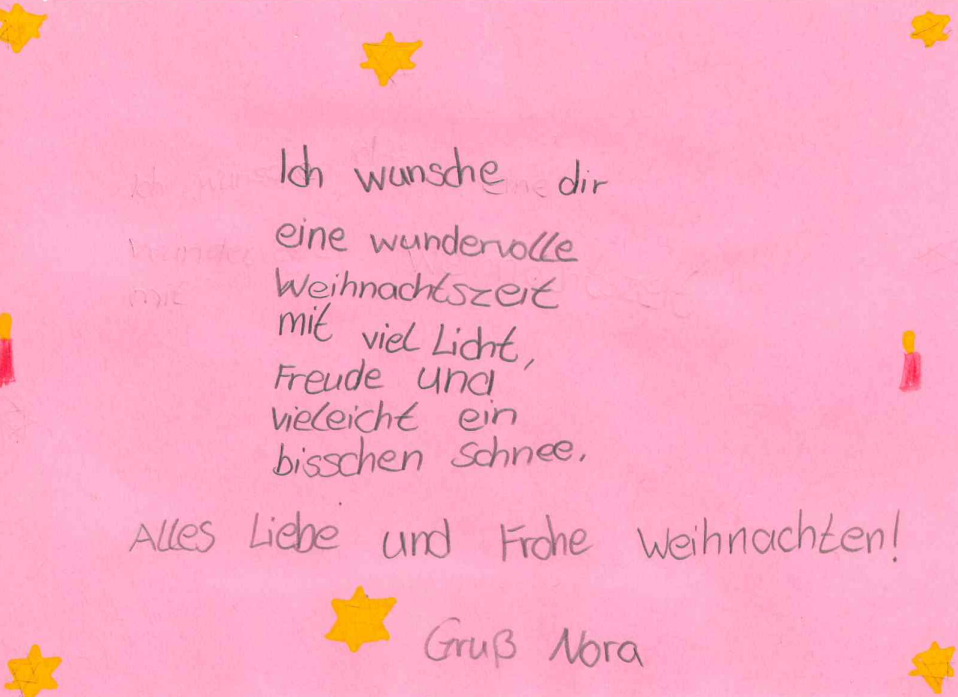 Ich wunsche dir
eine wundervolle
Weihnachtszeit
mit viel Licht,
Freude und
vieleicht ein
bisschen Schnee.
Alles Liebe und Frohe Weihnachten!
Gruß Nora